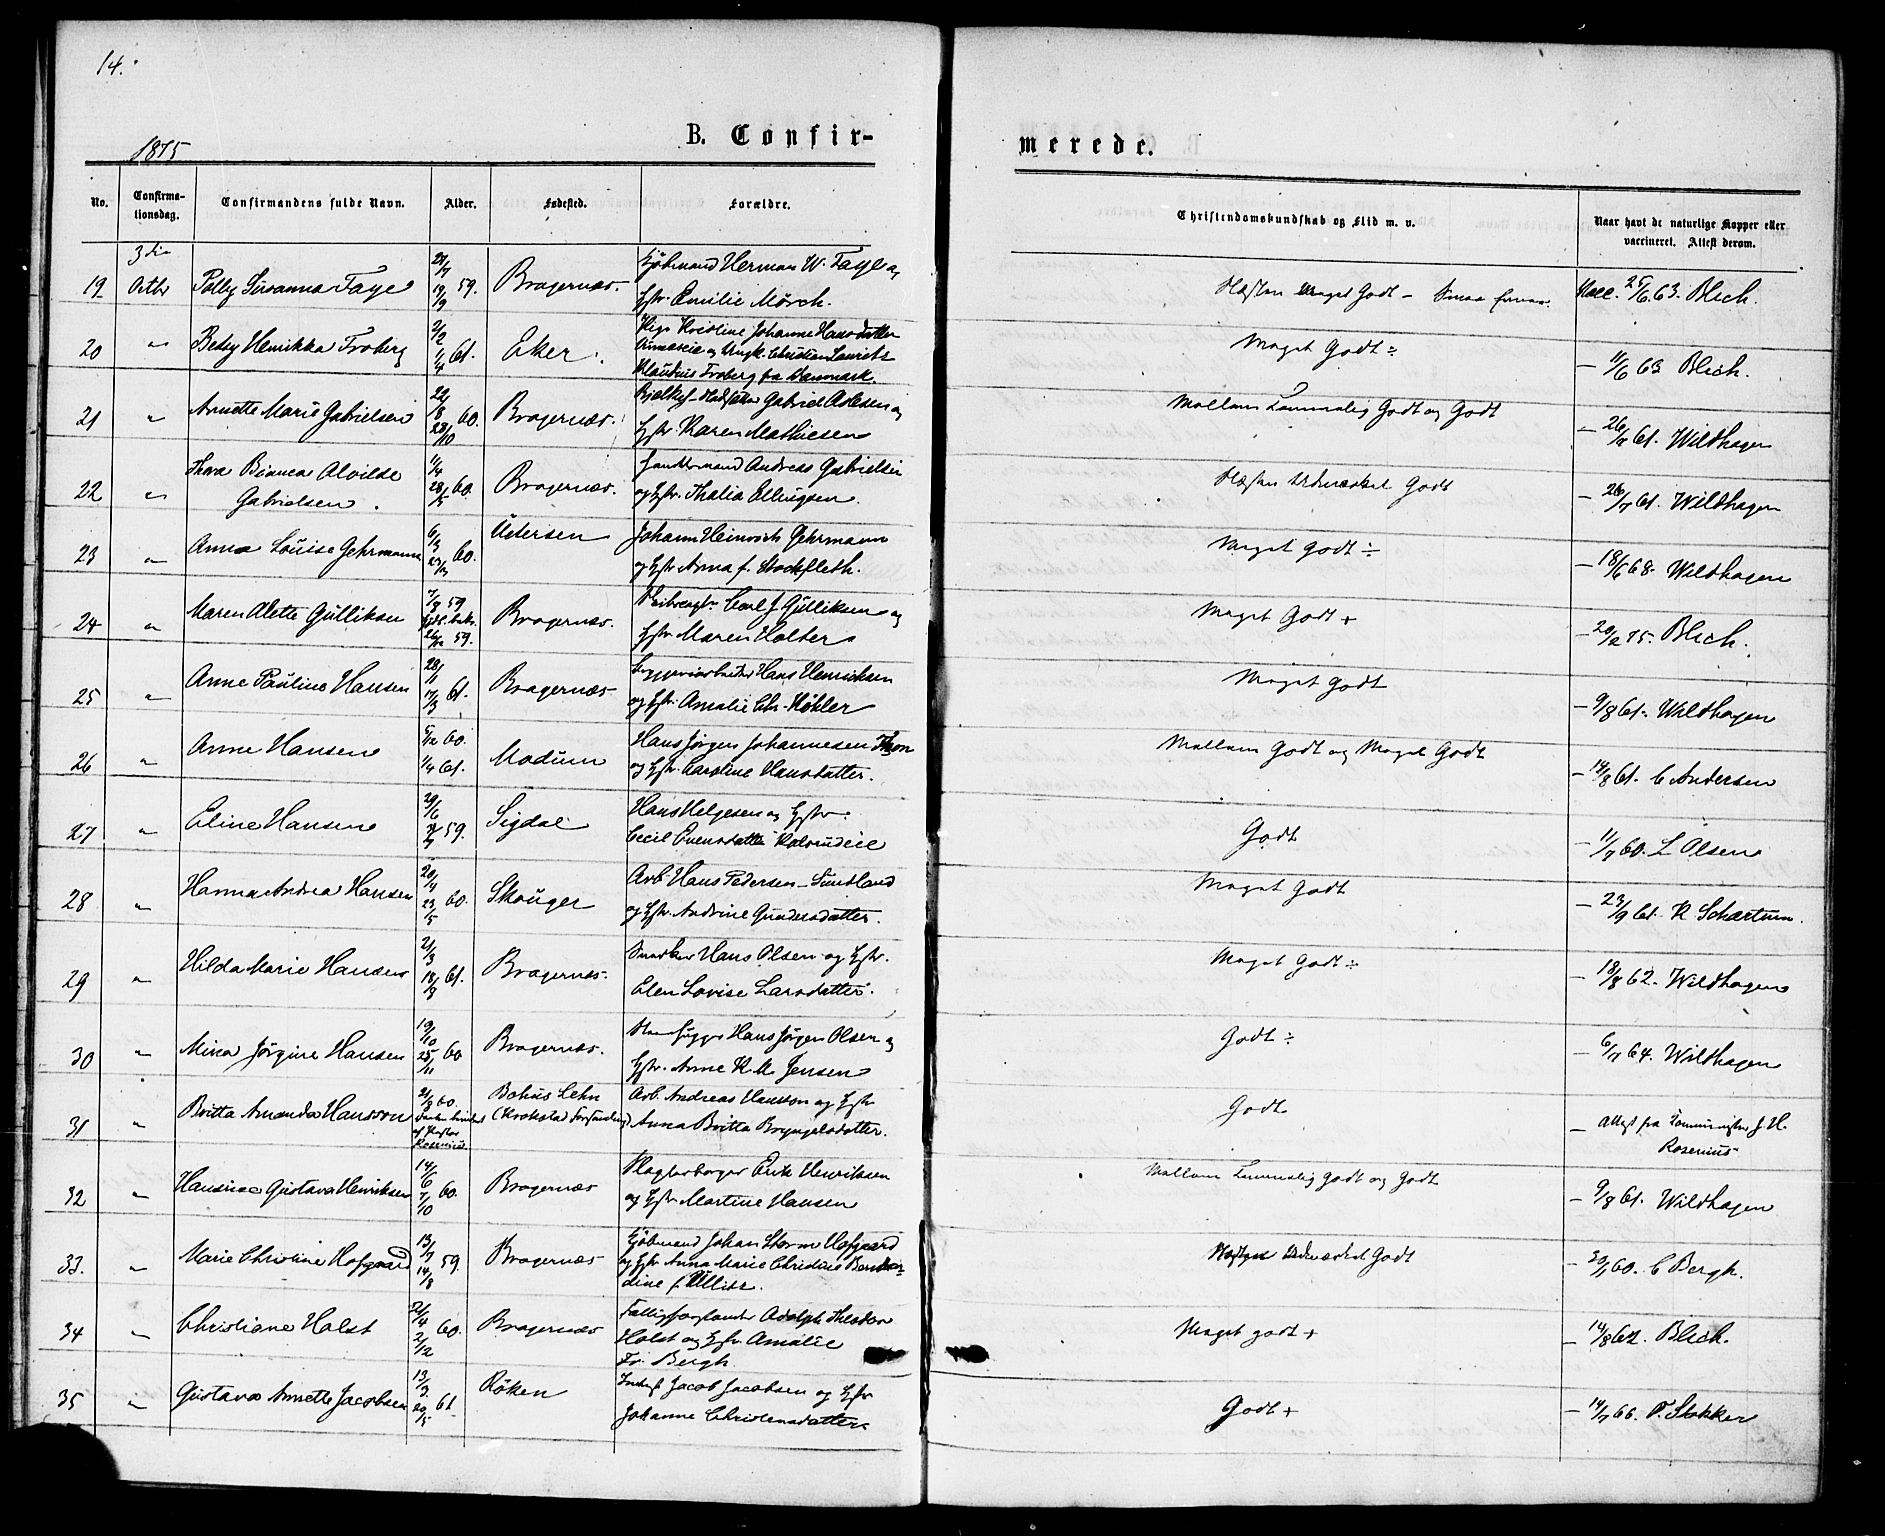 14.
1875
B. Confir-
merede.
No. Confirma-tionsdag. Confirmandens fulde Navn. Alder. Fødested. Forældre. Christendomskundskab og Flid m. v. Naar havt de naturlige Kopper eller vaccineret. Attest derom.
3die
19 Octbr Polly Susanna Faye 59. Bragernæs. Kjøbmand Herman W. Faye og
Hstr. Emilie Mörch. Næsten Meget Godt - Vacc. 25/6 63. Blich.
20 " Betsy Henrikka Froberg 2/2 1/4 61. Eker. Pige Kristine Johanne Hansdatter
og Ungk. Christian Laurits
Klaudius Froberg fra Danmark. Meget Godt ÷ - 11/6 63 Blich.
21 " Annette Marie Gabrielsen 22/8 28/10 60. Bragernæs. Gabriel Aslesen og
Hstr. Karen Mathiesen Mellem Temmelig Godt og Godt - 61. Wildhagen
22 " Thora Bianca Alvilde
Gabrielsen. 11/4 28/5 60. Bragernæs. Andreas Gabrielsen
og Hstr. Thalia Ellingsen. Næsten Udmærket Godt - 26/7 61. Wildhagen
23 " Anna Louise Gehrmann 60. Uetersen Johann Heinrich Gehrmann
og Hstr Anna f. Stockfleth. Meget Godt ÷ - 18/6 68. Wildhagen
24 " Maren Alette Gulliksen 7/8 59 59. Bragernæs. Carl J Gulliksen og
Hstr Maren Holter Meget Godt + - 20/2 75. Blich.
25 " Anne Pauline Hansen 28/1 17/3 61. Bragernæs Bryggeriarbeider Hans Henriksen
og Hstr. Amalie Chr. Köhler Meget Godt - 9/8 61. Wildhagen
26 " Anne Hansen 5/12 60. 1/4 61. Modum Hans Jörgen Johannesen Thon
og Hstr. Caroline Hansdatter. Mellem Godt og Meget Godt - 14/8 61. C Andersen
27 " Eline Hansen 29/6 59. Sigdal Hans Helgesen og Hstr.
Cecil Evensdatter Godt - 11/7 60. L Olsen
28 " Hanna Andrea Hansen 20/4 23/5 60. Skouger Arb. Hans Pedersen - Sundland
og Hstr. Andrine Gundersdatter. Meget Godt - 23/9 61. K Schartum.
29 " Hilda Marie Hansen 21/3 18/8 61. Bragernæs. Snedker Hans Olsen og Hstr.
Elen Lovise Larsdatter. Meget Godt ÷ - 18/8 62. Wildhagen
30 " Mina Jörgine Hansen 19/10 25/11 60 Bragernæs. Hans Jörgen Olsen og
Hstr. Anne K. M. Jensen Godt ÷ - 6/7 64. Wildhagen
31 " Britta Amanda Hansson 60. af Pastor
Rosenius. Bohus Lehn
(Krokstad Forsamling) Arb. Andreas Hansson og Hstr
Anna Britta Bryngelsdatter. Godt - Attest fra Komminister J. H.
Rosenius
32 " Hansine Gustava Henriksen 14/6 7/10 60. Bragernæs Erik Henriksen
og Hstr Martine Hansen Mellem Temmelig Godt og Godt - 9/8 61. Wildhagen
33. " Marie Christine Hofgaard 13/7 14/8 59. Bragernæs Kjöbmand Johan Storm Hofgaard
og Hstr Anna Marie Christine
Udmærket Godt - 60. C Bergh.
34 " Christiane Holst 60. Bragernæs Adolph Theodor
Holst og Hstr Amalie
Fr. Bergh Meget godt + - 14/8 62. Blich.
35 " Gustava Annette Jacobsen 13/3 20/5 61 Röken Jacob Jacobsen og Hstr
Johanne Christensdatter Godt + - 14/7 66. P. Stokker